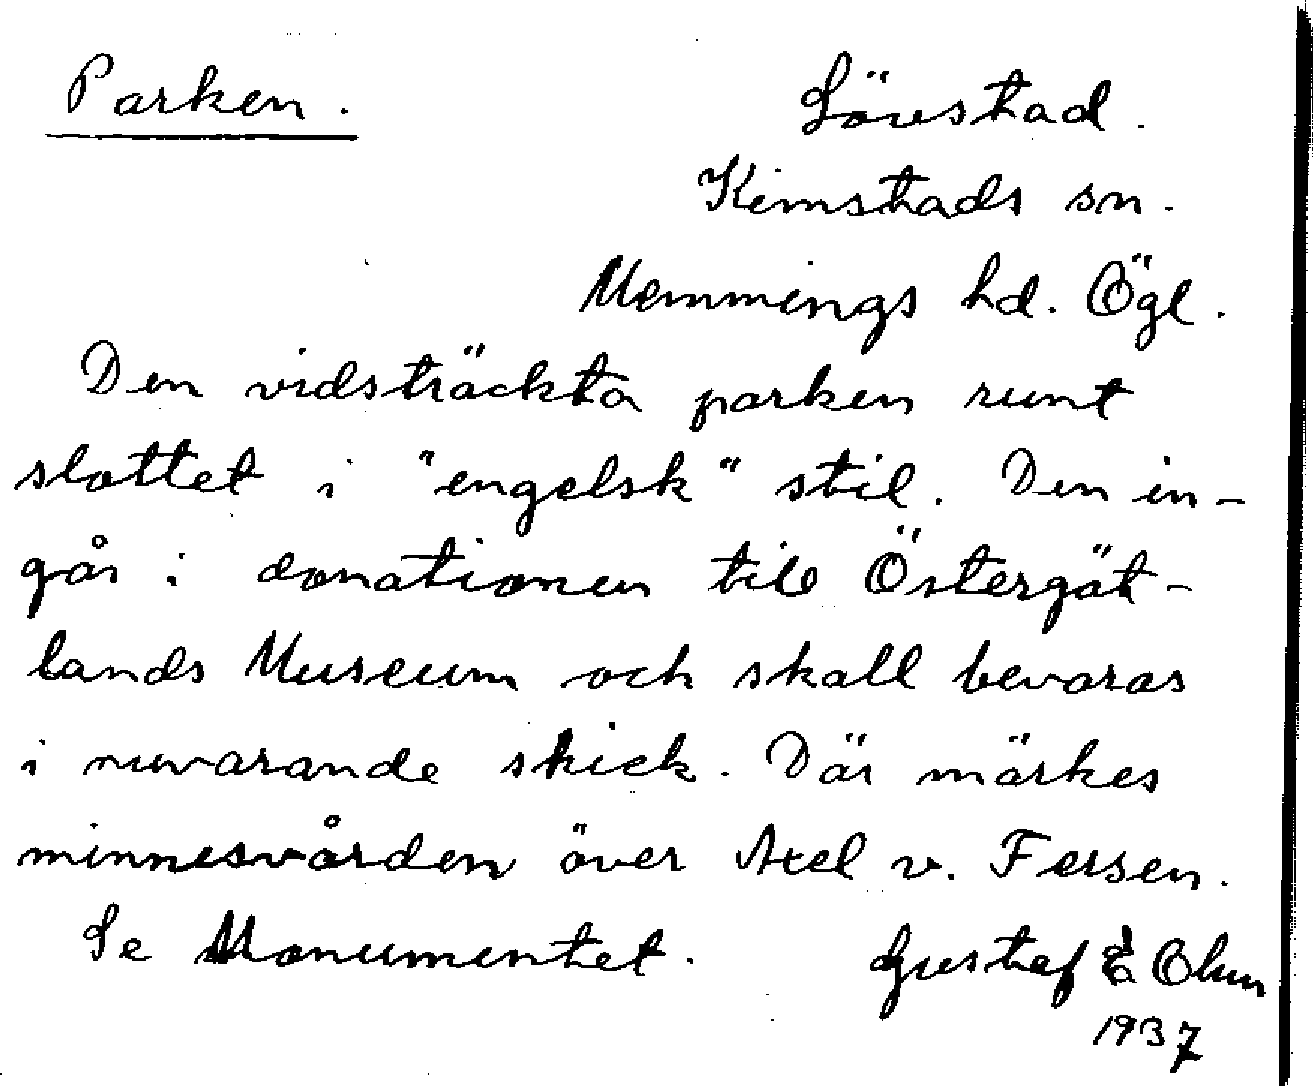 Parken.
Lövstad.
Kimstads sn.
Memmings hd. Ögl.
Den vidsträckta parken runt
slottet i "engelsk" stil. Den in-
går i donationen till Östergöt-
lands Museum och skall bevaras
i nuvarande skick. Där märkes
minnesvården över Axel v. Fersen.
Se Monumentet.
Gustaf E Olsen
1937